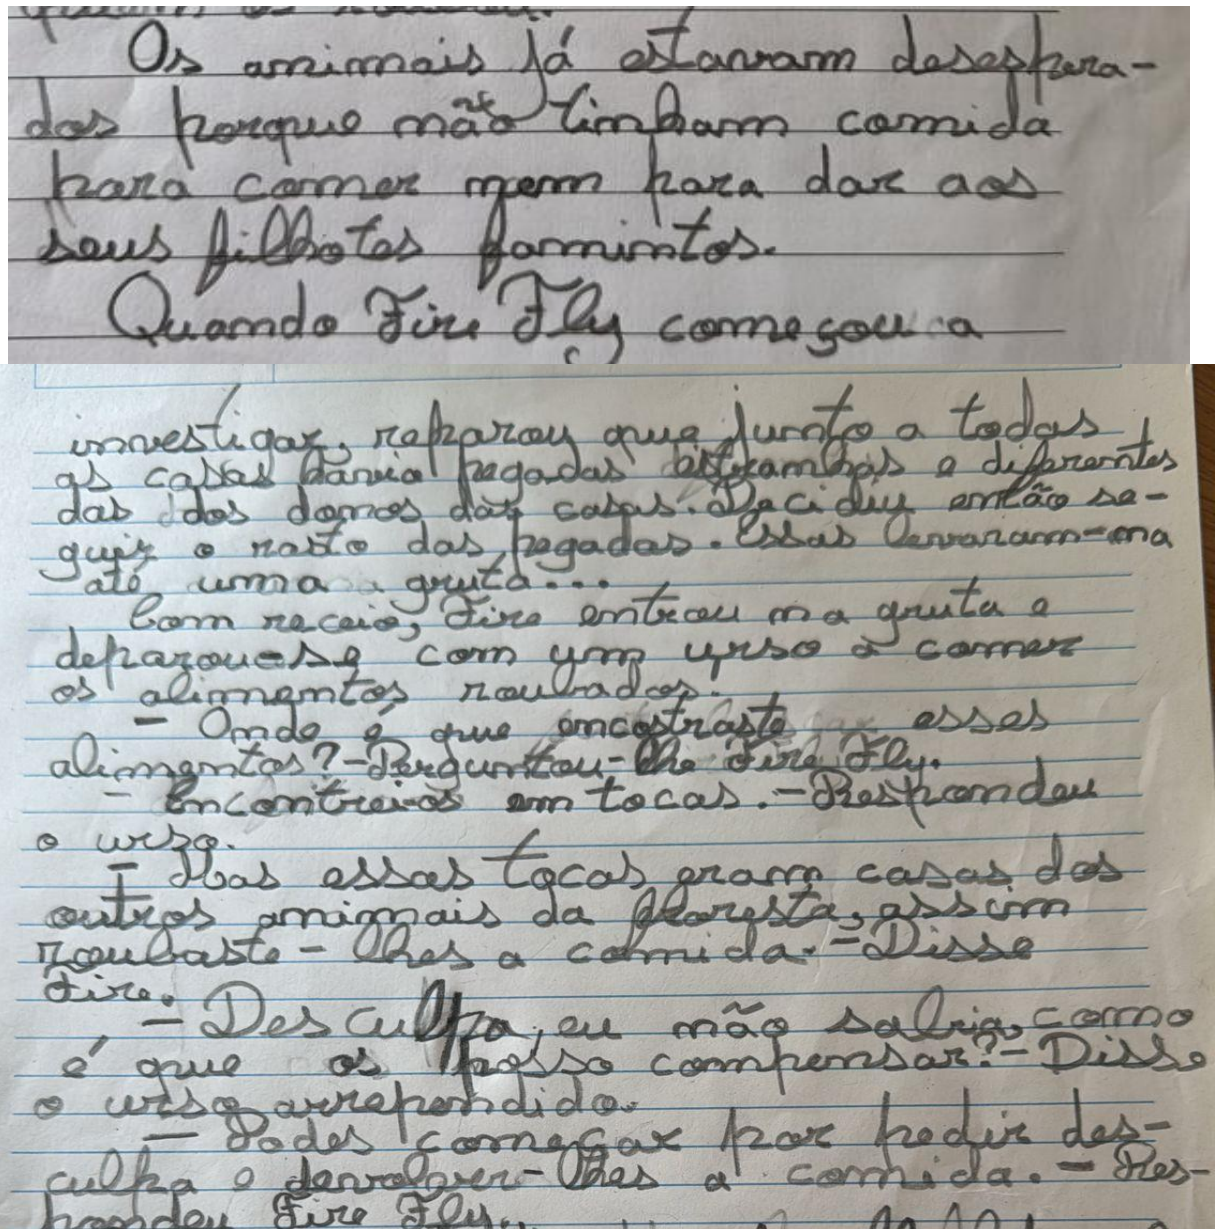 Os animais já estavam desespera-
dos porque não tinham comida
para comer nem para dar aos
seus filhotes famintos.
Quando Fire Fly começou a
investigar, reparou que junto a todas
as casas havia pegadas estranhas e diferentes
das dos donos das casas. Decidiu então se-
guir o rasto das pegadas. Essas levaram-na
até uma gruta...
Com receio, Fire entrou na gruta e
deparou-se com um urso a comer
os alimentos roubados.
- Onde é que encostraste esses
alimentos? - Perguntou-lhe Fire Fly.
- Encontrei-os em tocas. - Respondeu
o urso.
- Mas essas tocas eram casas dos
outros animais da floresta, assim
roubaste-lhes a comida. - Disse
Fire.
- Desculpa, eu não sabia, como
é que os posso compensar? - Disse
o urso arrependido.
- Podes começar por pedir des-
culpa e devolver-lhes a comida. - Res-
pondeu Fire Fly.